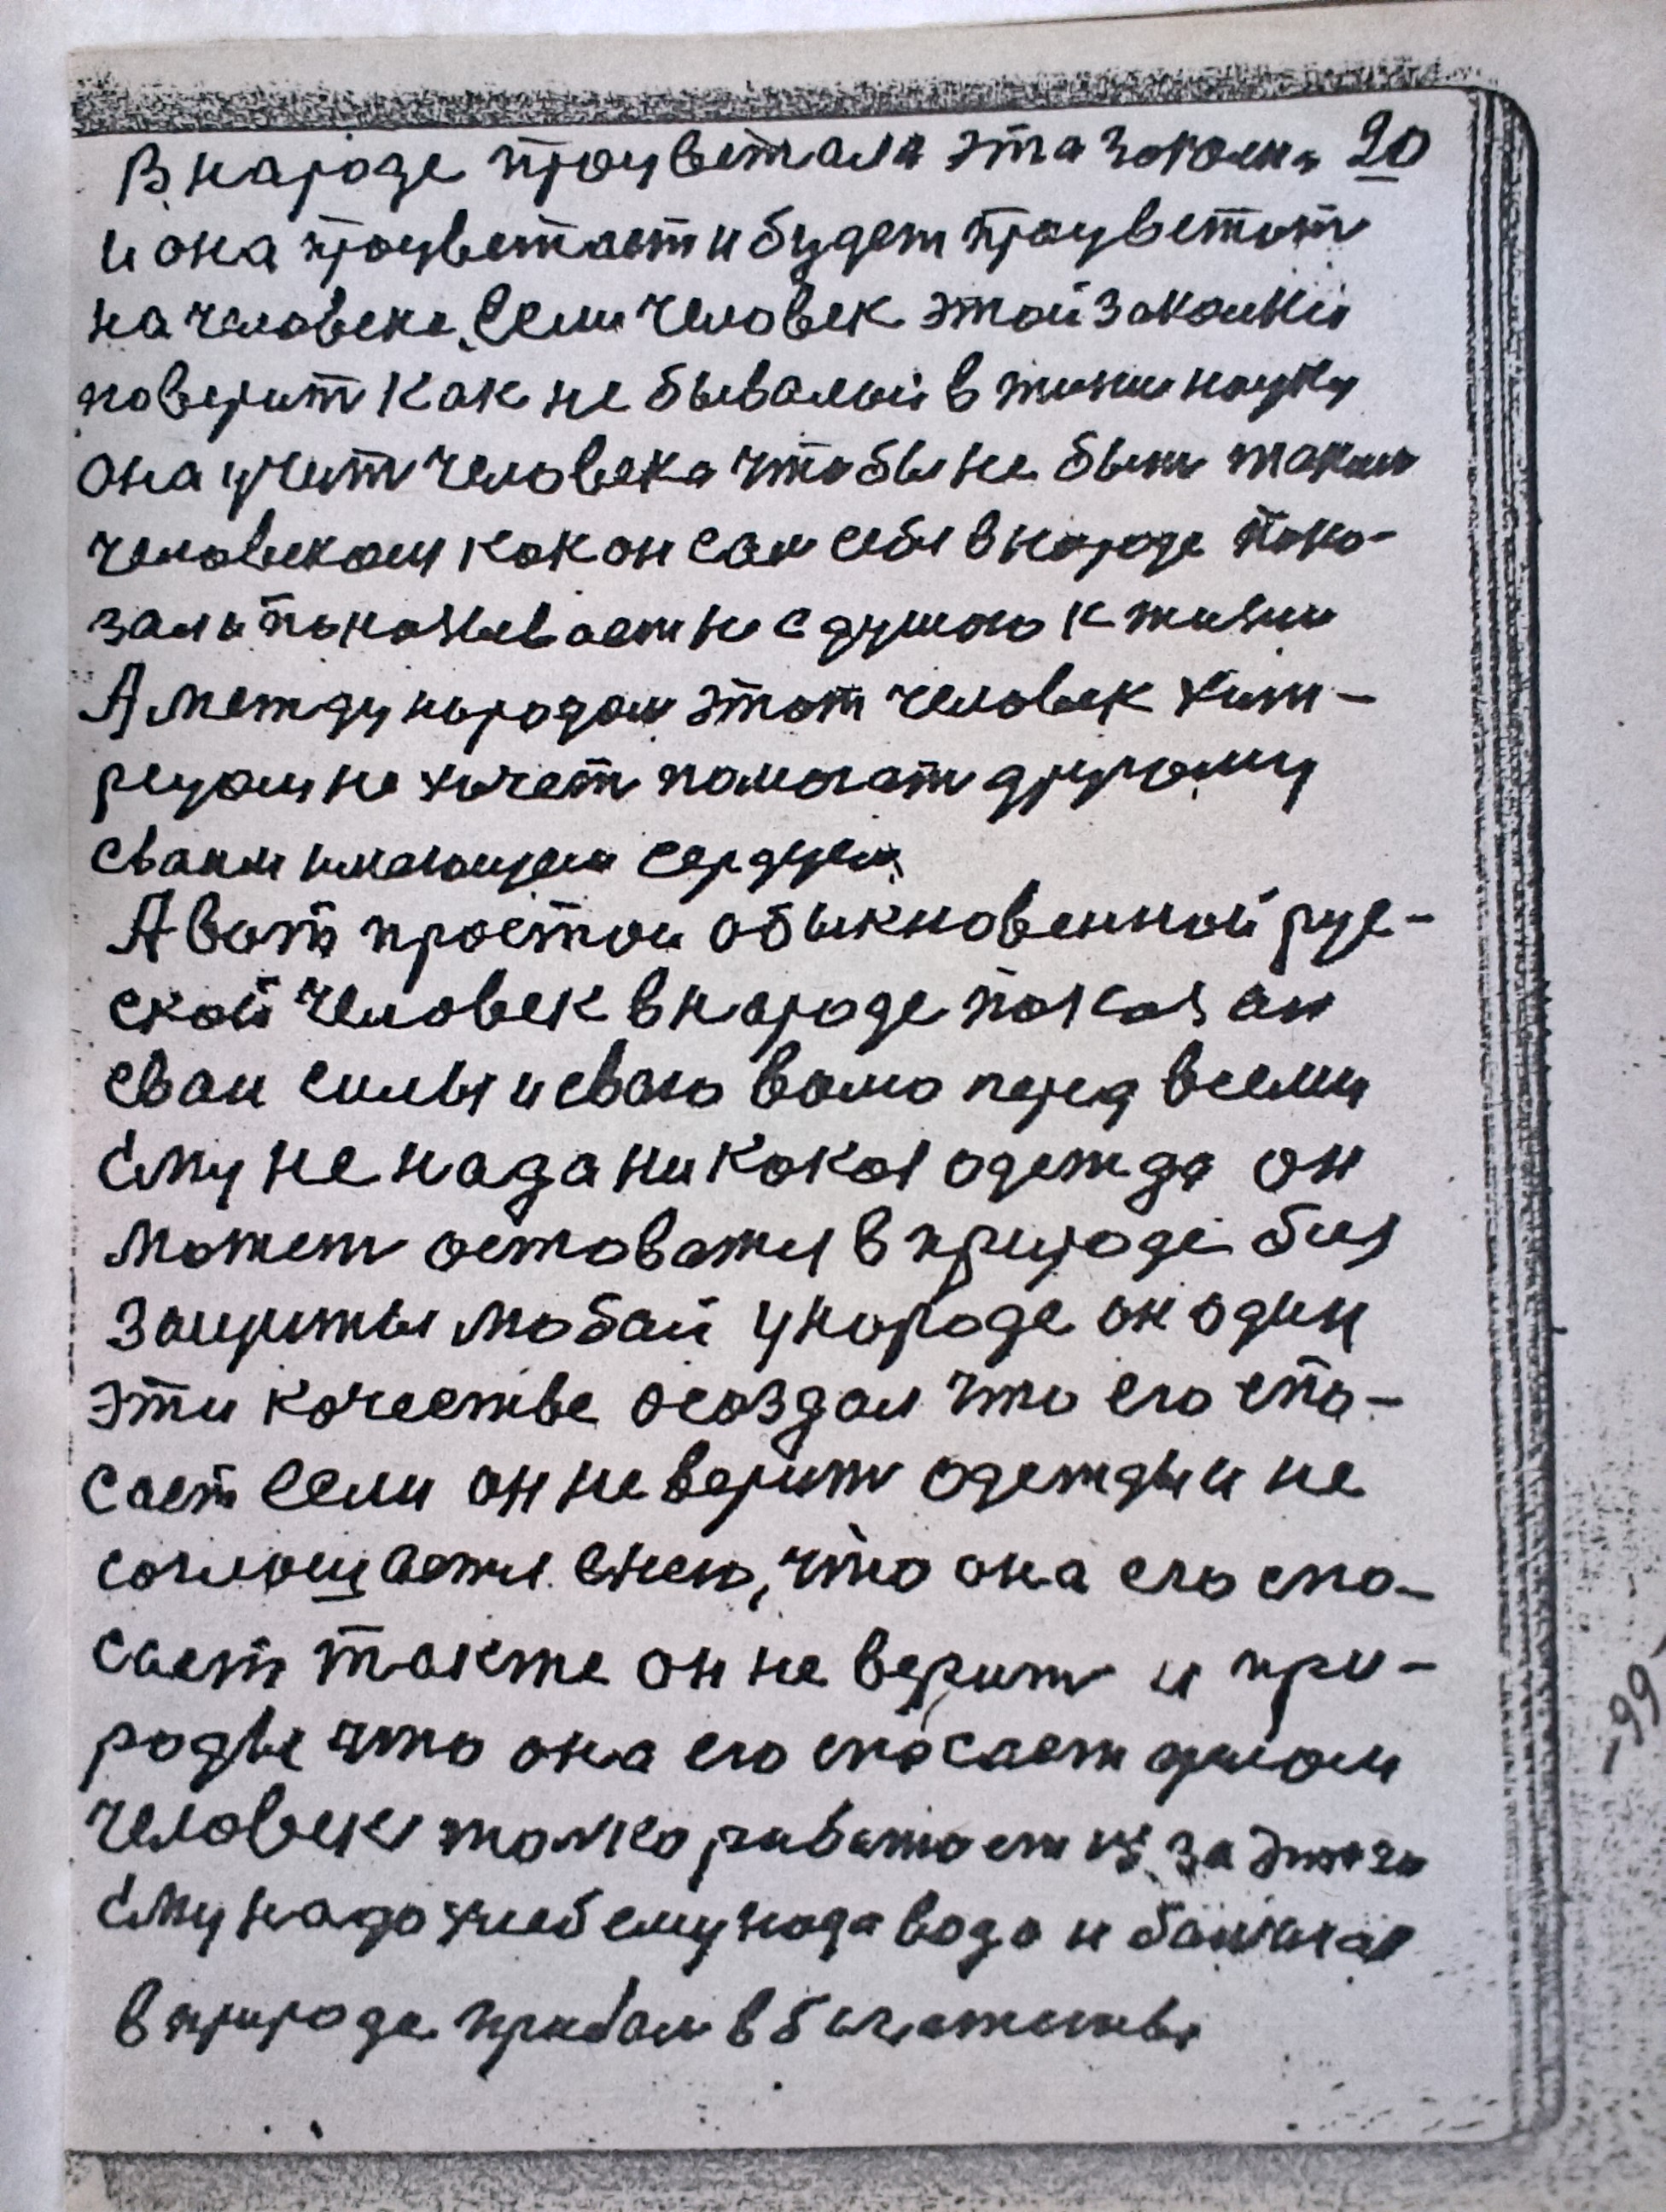 В народе процветала эта закалка 20
и она процветает и будет процветат
на человеке. Если человек этой закалки
поверит как не бывалый в жизни науку
она учит человека чтобы не быт таким
человеком как он сам себя в народе пока-
зал и показывает не с душою к жизни
А между народом этот человек хит-
рецом не хочет помогат другому
сваим имеющем сердцем
А вот простои обыкновенной рус-
ской человек в народе показал
сваи силы и сваю волю перед всеми
Ему не нада никокая одежда он
может оставатся в природе без
защиты любай у народе он один
эти качестве осоздал что его спа-
сает если он не верит одежды и не
соглощается снею, что она его спа-
сает такше он не верит и при-
роды что она его спасает делом
человек толко работает из за этого
Ему надо хлеб ему нада вода и
в природе прибыл в
-99-